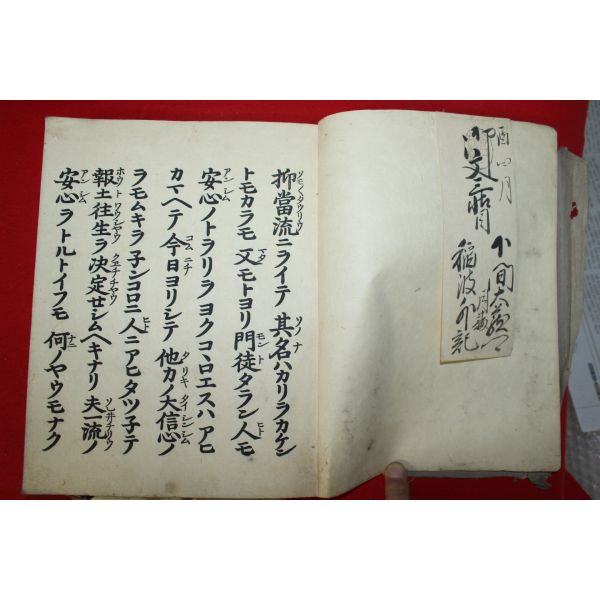 酉四月
稲波外記
抑當流ニヲイテ其名ハカリヲカケン
トモカラモ又モトヨリ門徒タラン人モ
安心ノトヲリヲヨクコヽロエスハアヒ
カマヘテ今日ヨリシテ他力大信心ノ
ヲモムキヲ子ンコロニ人ニアヒタツ子テ
報土往生ヲ決定セシムヘキナリ夫一流ノ
安心ヲトルトイフモ何ノヤウモナク